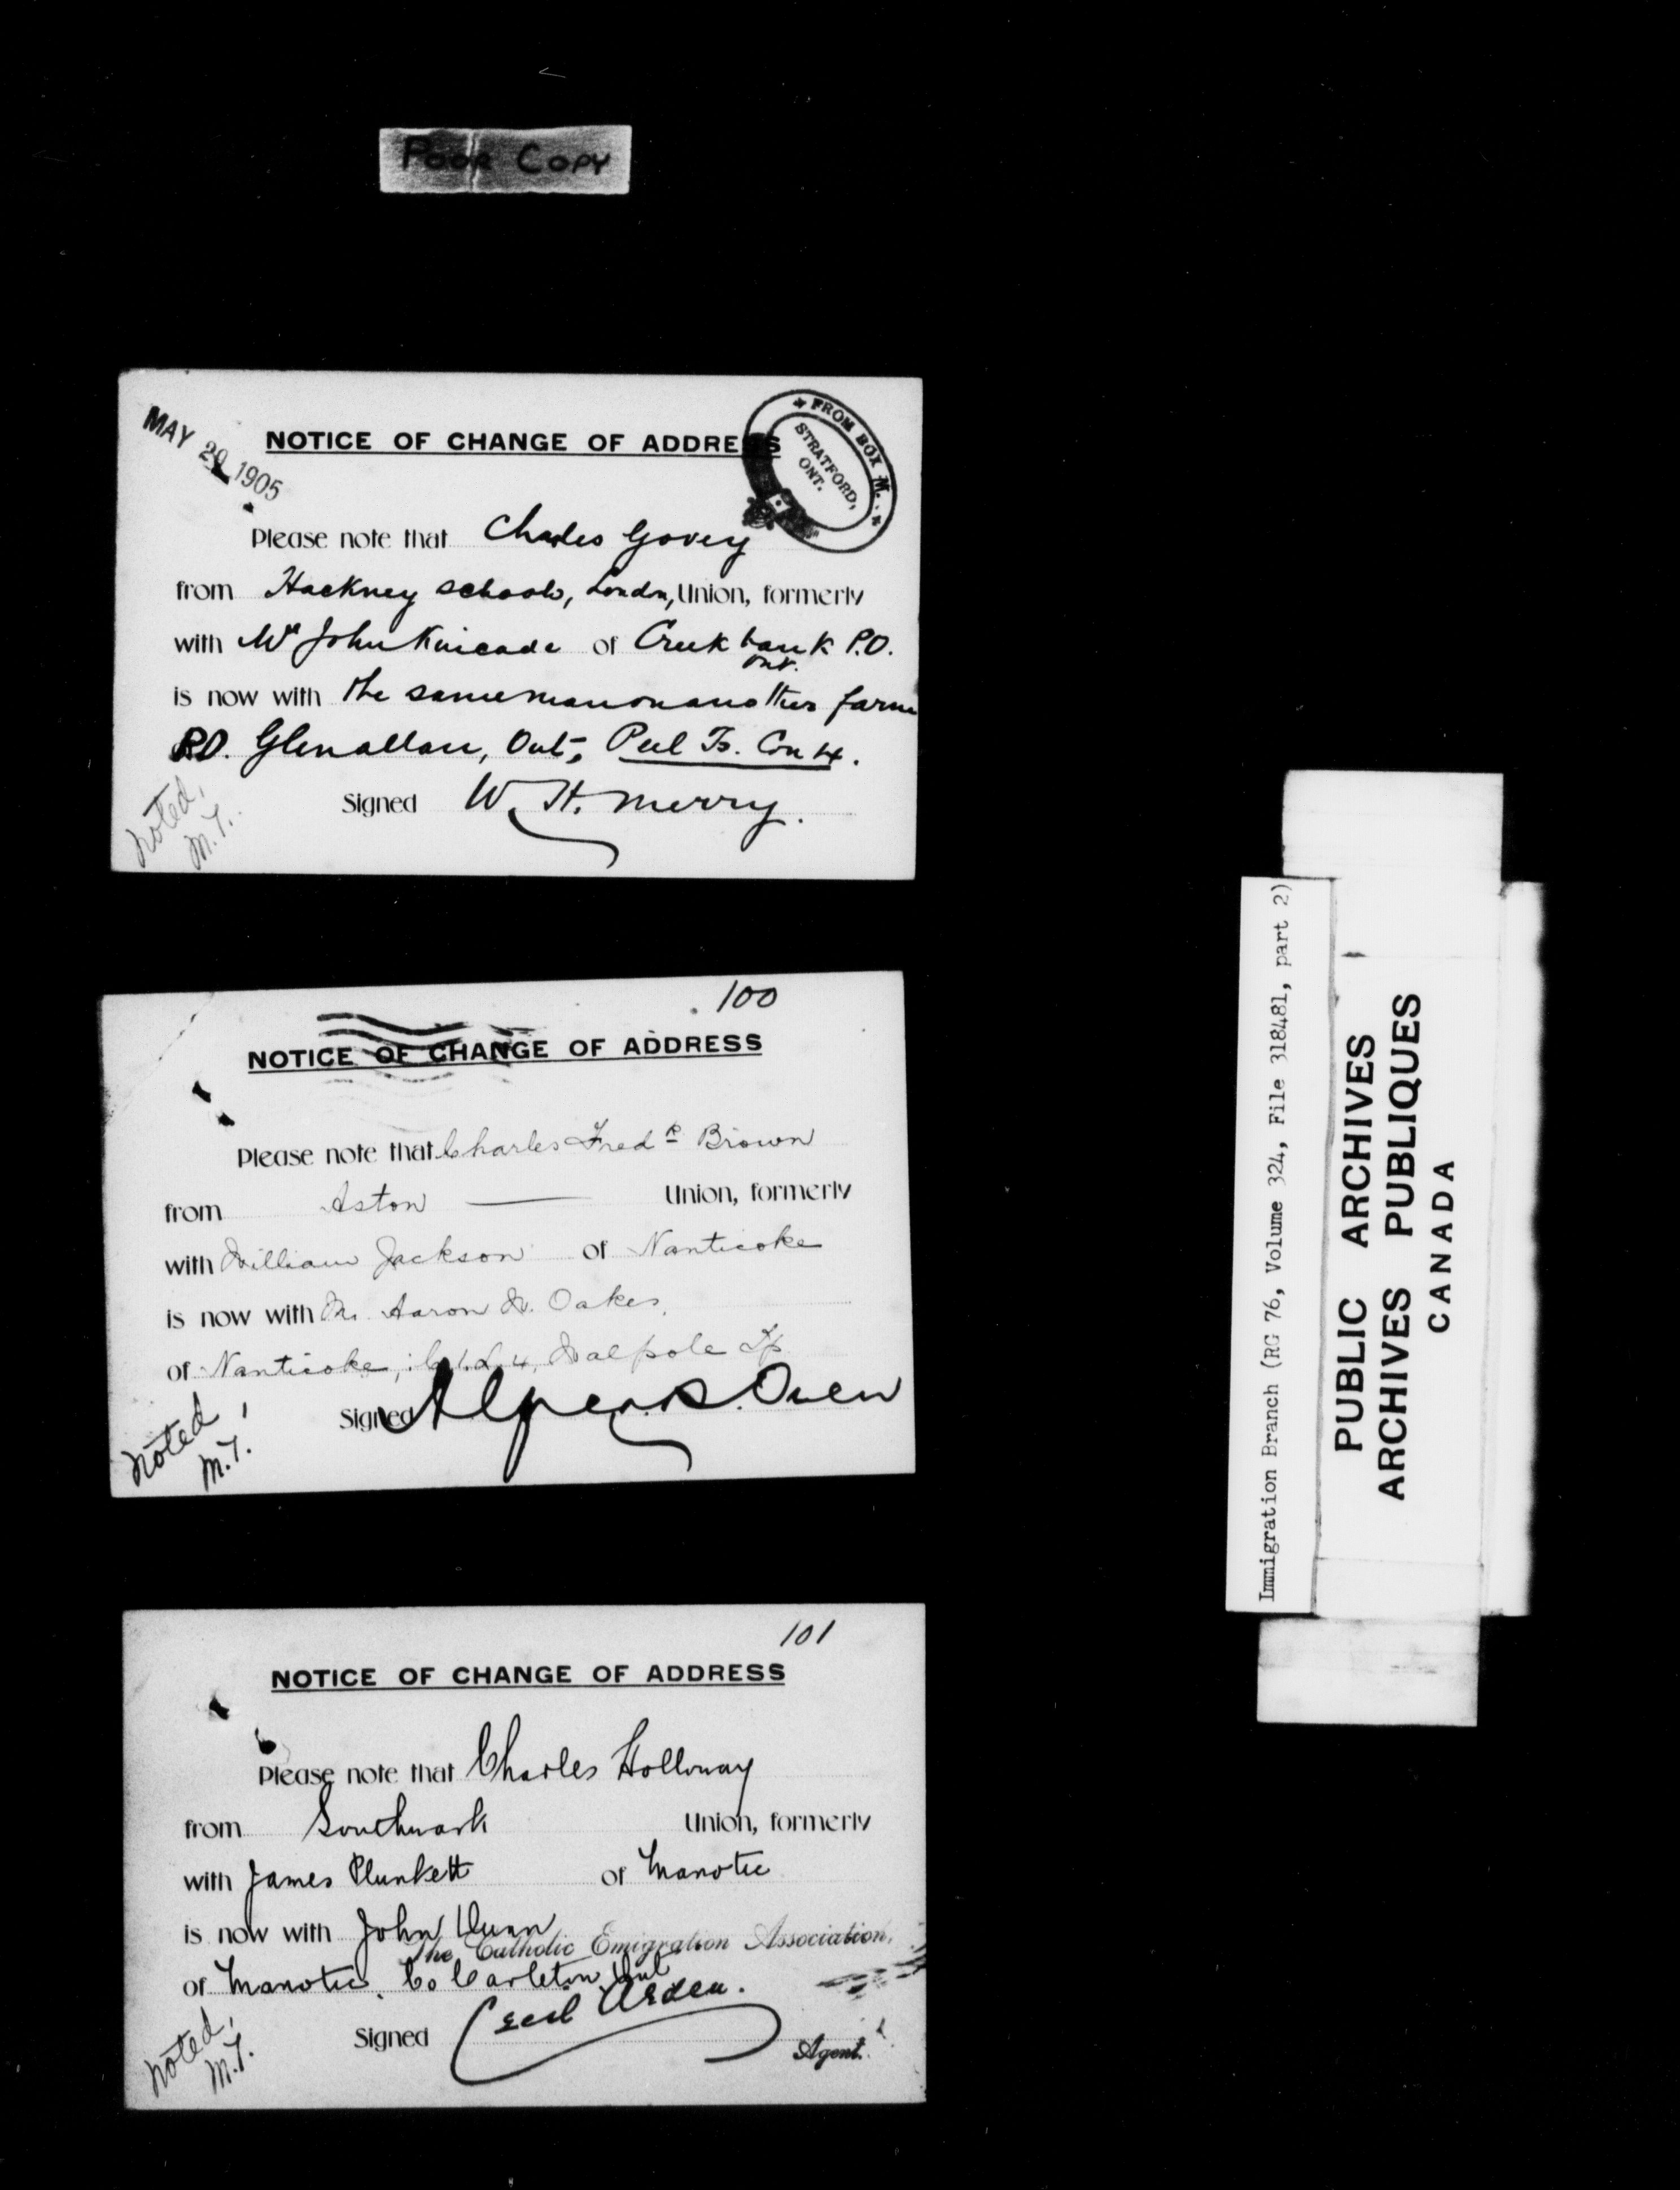 Poor Copy
MAY 29 1905
FROM BOX M.
STRATFORD,
ONT.
NOTICE OF CHANGE OF ADDRESS
Please note that Charles Govey
from Hackney schools, London, Union, formerly
with Mr John Kincade of Creekbank P.O.
Ont.
is now with the same man on another farm
P.O. Glenallan, Ont, Peel Tp. Con 4.
Signed W. H. Merry.
Noted,
M.T.
100
NOTICE OF CHANGE OF ADDRESS
Please note that Charles Fredk Brown
from Aston Union, formerly
with William Jackson of Nanticoke
is now with Mr. Aaron W. Oakes,
of Nanticoke, C. 1. L. 4, Walpole Tp
Signed Owen
Noted,
M.T.
101
NOTICE OF CHANGE OF ADDRESS
Please note that Charles Holloway
from Southwark Union, formerly
with James Plunkett of Manotic
is now with John Dunn
The Catholic Emigration Association,
of Manotic, Co Carleton, Ont
Signed Cecil Arden.
Agent.
Noted,
M.T.
Immigration Branch (RG 76, Volume 324, File 318481, part 2)
PUBLIC ARCHIVES
ARCHIVES PUBLIQUES
CANADA